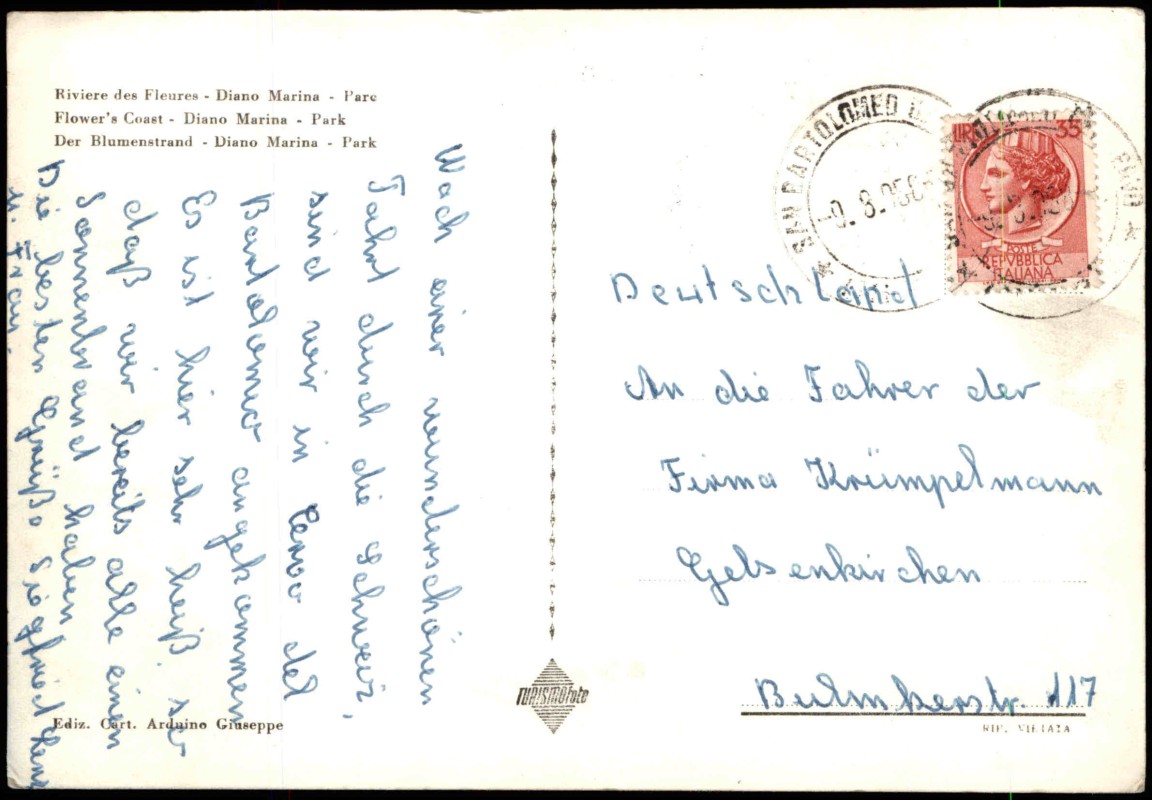 Riviere des Fleures - Diano Marina - Parc
Flower's Coast - Diano Marina - Park
Der Blumenstrand - Diano Marina - Park
Nach einer wunderschönen
Fahrt durch die Schweiz,
sind wir in Cervo del
Bartolomeo angekommen
Es ist hier sehr heiß so
daß wir bereits alle einen
Sonnenbrand haben
Die besten Grüße Siegfried
u. Frau.
Ediz. Cart. Arduino Giuseppe
TURISMOfoto
SAN BARTOLOMEO
LIRE 35
POSTE
REPVBBLICA
ITALIANA
Deutschland
An die Fahrer der
Firma Krümpelmann
Gelsenkirchen
Bulmkerstr. 117
RIP. VIETATA